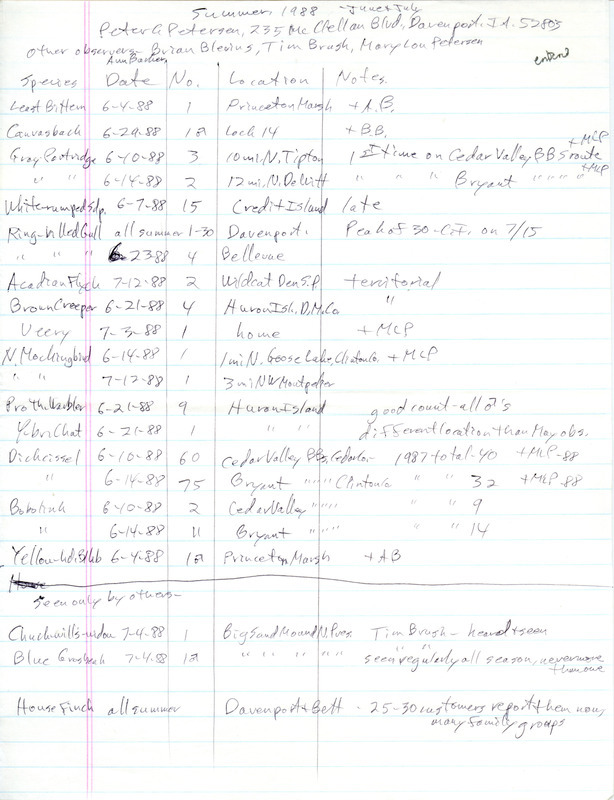 Summer 1988 - June & July
Peter C. Petersen, 235 McClellan Blvd, Davenport, IA. 52803
Other observers - Brian Blevins, Tim Brush, Mary Lou Petersen
Ann Barker
enterd
Species Date No. Location Notes
Least Bittern 6-4-88 1 Princeton Marsh + A.B.
Canvasback 6-29-88 1♂ Lock 14 + B.B.
Gray Partridge 6-10-88 3 10 mi. N. Tipton 1st time on Cedar Valley BBS route + MLP
" " 6-14-88 2 12 mi. N. DeWitt " " " Bryant " " " + MLP
White-rumped Sdp. 6-7-88 15 Credit Island late
Ring-billed Gull all summer 1-30 Davenport. Peak of 30 - C.F. on 7/15
" " 6-23-88 4 Bellevue
Acadian Flych 7-12-88 2 Wildcat Den S.P. territorial
Brown Creeper 6-21-88 4 Huron Isl. D.M. Co. "
Veery 7-3-88 1 home + MLP
N. Mockingbird 6-14-88 1 1 mi N. Goose Lake, Clinton Co. + MLP
" " 7-12-88 1 3 mi NW Montpelier
Proth. Warbler 6-21-88 9 Huron Island good count - all ♂'s
Y-br. Chat 6-21-88 1 " " different location than May obs.
Dickcissel 6-10-88 60 Cedar Valley BBS, Cedar Co. - 1987 total - 40 + MLP - 88
" 6-14-88 75 Bryant " " " Clinton Co " " 32 + MLP - 88
Bobolink 6-10-88 2 Cedar Valley " " " " 9
" 6-14-88 11 Bryant " " " " " 14
Yellow-hd Blkb 6-4-88 1♂ Princeton Marsh + AB
Seen only by others -
Chuck-wills-widow 7-4-88 1 Big Sand Mound N. Pres. Tim Brush - heard + seen
Blue Grosbeak 7-4-88 1♂ " " " " " " seen regularly all season, never more than one
House Finch all summer Davenport & Bett - 25-30 customers report them now,
many family groups